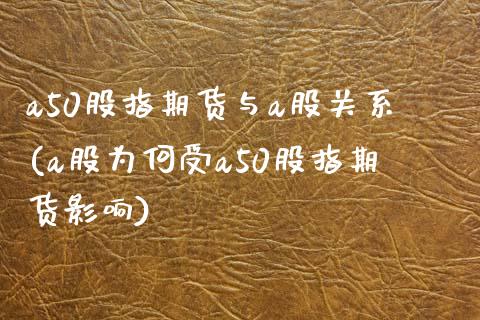 a50股指期货与a股关系
(a股为何受a50股指期
货影响)